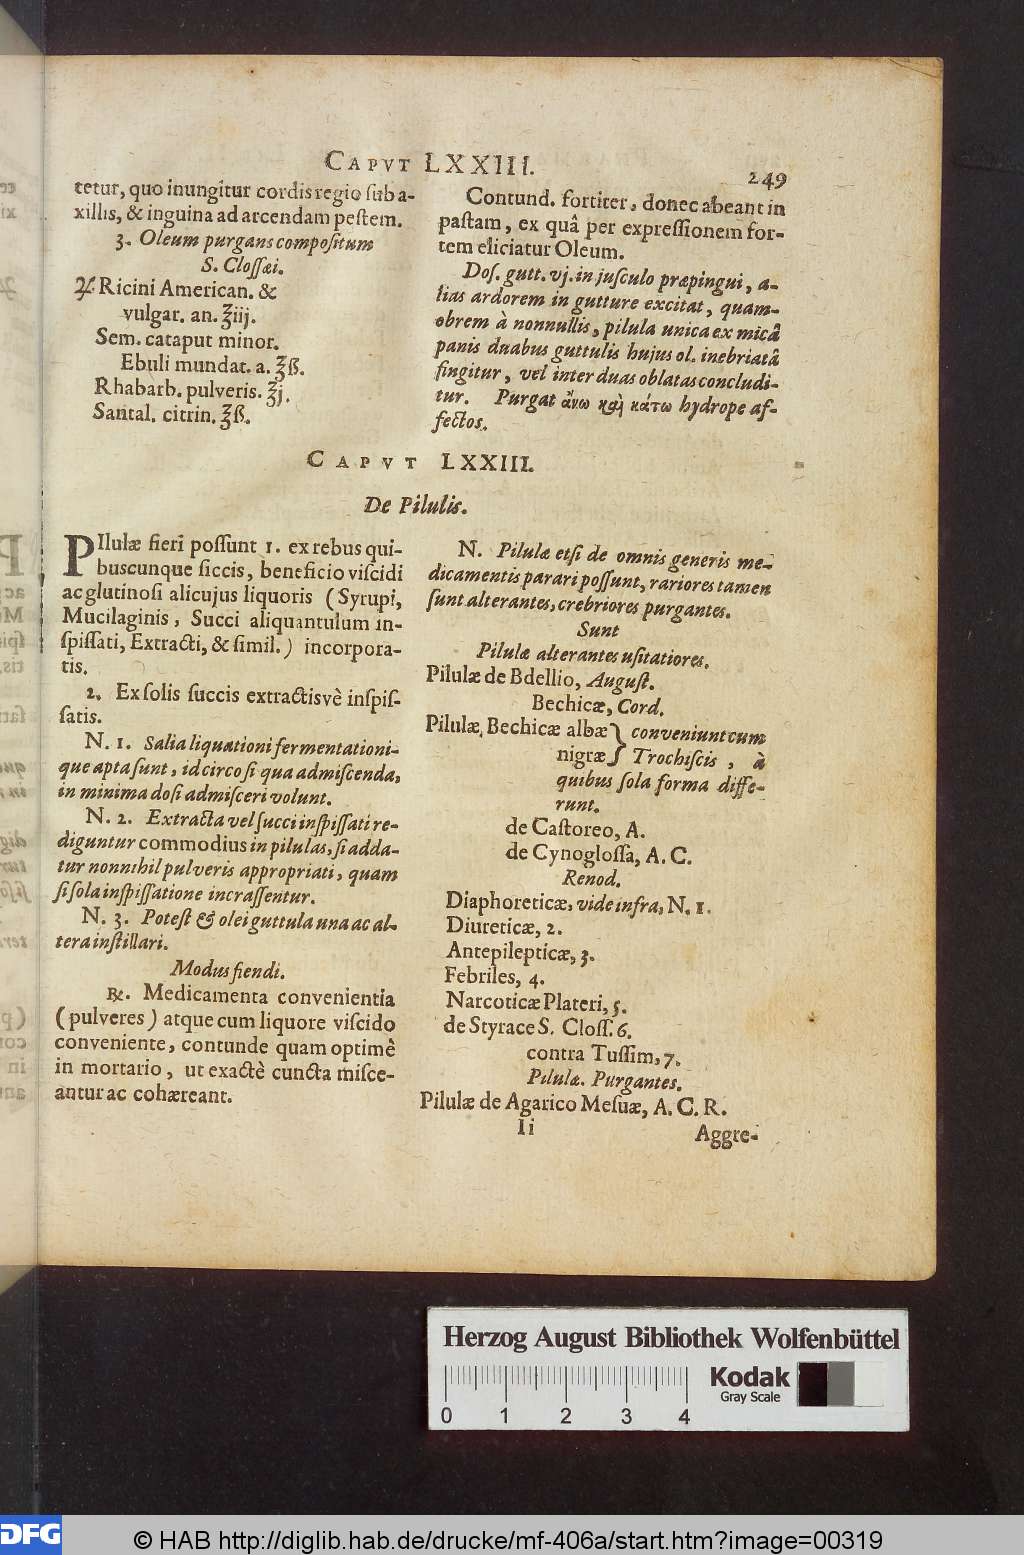 CAPVT LXXIII.
249
tetur, quo inungitur cordis regio sub a-
xillis, & inguina ad arcendam pestem.
3. Oleum purgans compositum
S. Clossæi.
♃. Ricini American. &
vulgar. an. ℥iij.
Sem. cataput minor.
Ebuli mundat. a. ℥ß.
Rhabarb. pulveris. ℥j.
Santal. citrin. ℥ß.
Contund. fortiter, donec abeant in
pastam, ex quâ per expressionem for-
tem eliciatur Oleum.
Dos. gutt. vj. in jusculo præpingui, a-
lias ardorem in gutture excitat, quam-
obrem à nonnullis, pilula unica ex micâ
panis duabus guttulis hujus ol. inebriatâ
fingitur, vel inter duas oblatas concludi-
tur. Purgat ἄνω καὶ κάτω hydrope af-
fectos.
CAPVT LXXIII.
De Pilulis.
PIlulæ fieri possunt 1. ex rebus qui-
buscunque siccis, beneficio viscidi
ac glutinosi alicujus liquoris (Syrupi,
Mucilaginis, Succi aliquantulum in-
spissati, Extracti, & simil.) incorpora-
tis.
2. Ex solis succis extractisvè inspis-
satis.
N. 1. Salia liquationi fermentationi-
que apta sunt, idcirco si qua admiscenda,
in minima dosi admisceri volunt.
N. 2. Extracta vel succi inspissati re-
diguntur commodius in pilulas, si adda-
tur nonnihil pulveris appropriati, quam
si sola inspissatione incrassentur.
N. 3. Potest & olei guttula una ac al-
tera instillari.
Modus fiendi.
℞. Medicamenta convenientia
(pulveres) atque cum liquore viscido
conveniente, contunde quam optimè
in mortario, ut exactè cuncta misce-
antur ac cohæreant.
N. Pilulæ etsi de omnis generis me-
dicamentis parari possunt, rariores tamen
sunt alterantes, crebriores purgantes.
Sunt
Pilulæ alterantes usitatiores.
Pilulæ de Bdellio, August.
Bechicæ, Cord.
Pilulæ, Bechicæ albæ } conveniunt cum
nigræ } Trochiscis, à
quibus sola forma diffe-
runt.
de Castoreo, A.
de Cynoglossa, A. C.
Renod.
Diaphoreticæ, vide infra, N. 1.
Diureticæ, 2.
Antepilepticæ, 3.
Febriles, 4.
Narcoticæ Plateri, 5.
de Styrace S. Closs. 6.
contra Tussim, 7.
Pilulæ. Purgantes.
Pilulæ de Agarico Mesuæ, A. C. R.
Ii
Aggre-
Herzog August Bibliothek Wolfenbüttel
Kodak
Gray Scale
0 1 2 3 4
DFG
© HAB http://diglib.hab.de/drucke/mf-406a/start.htm?image=00319